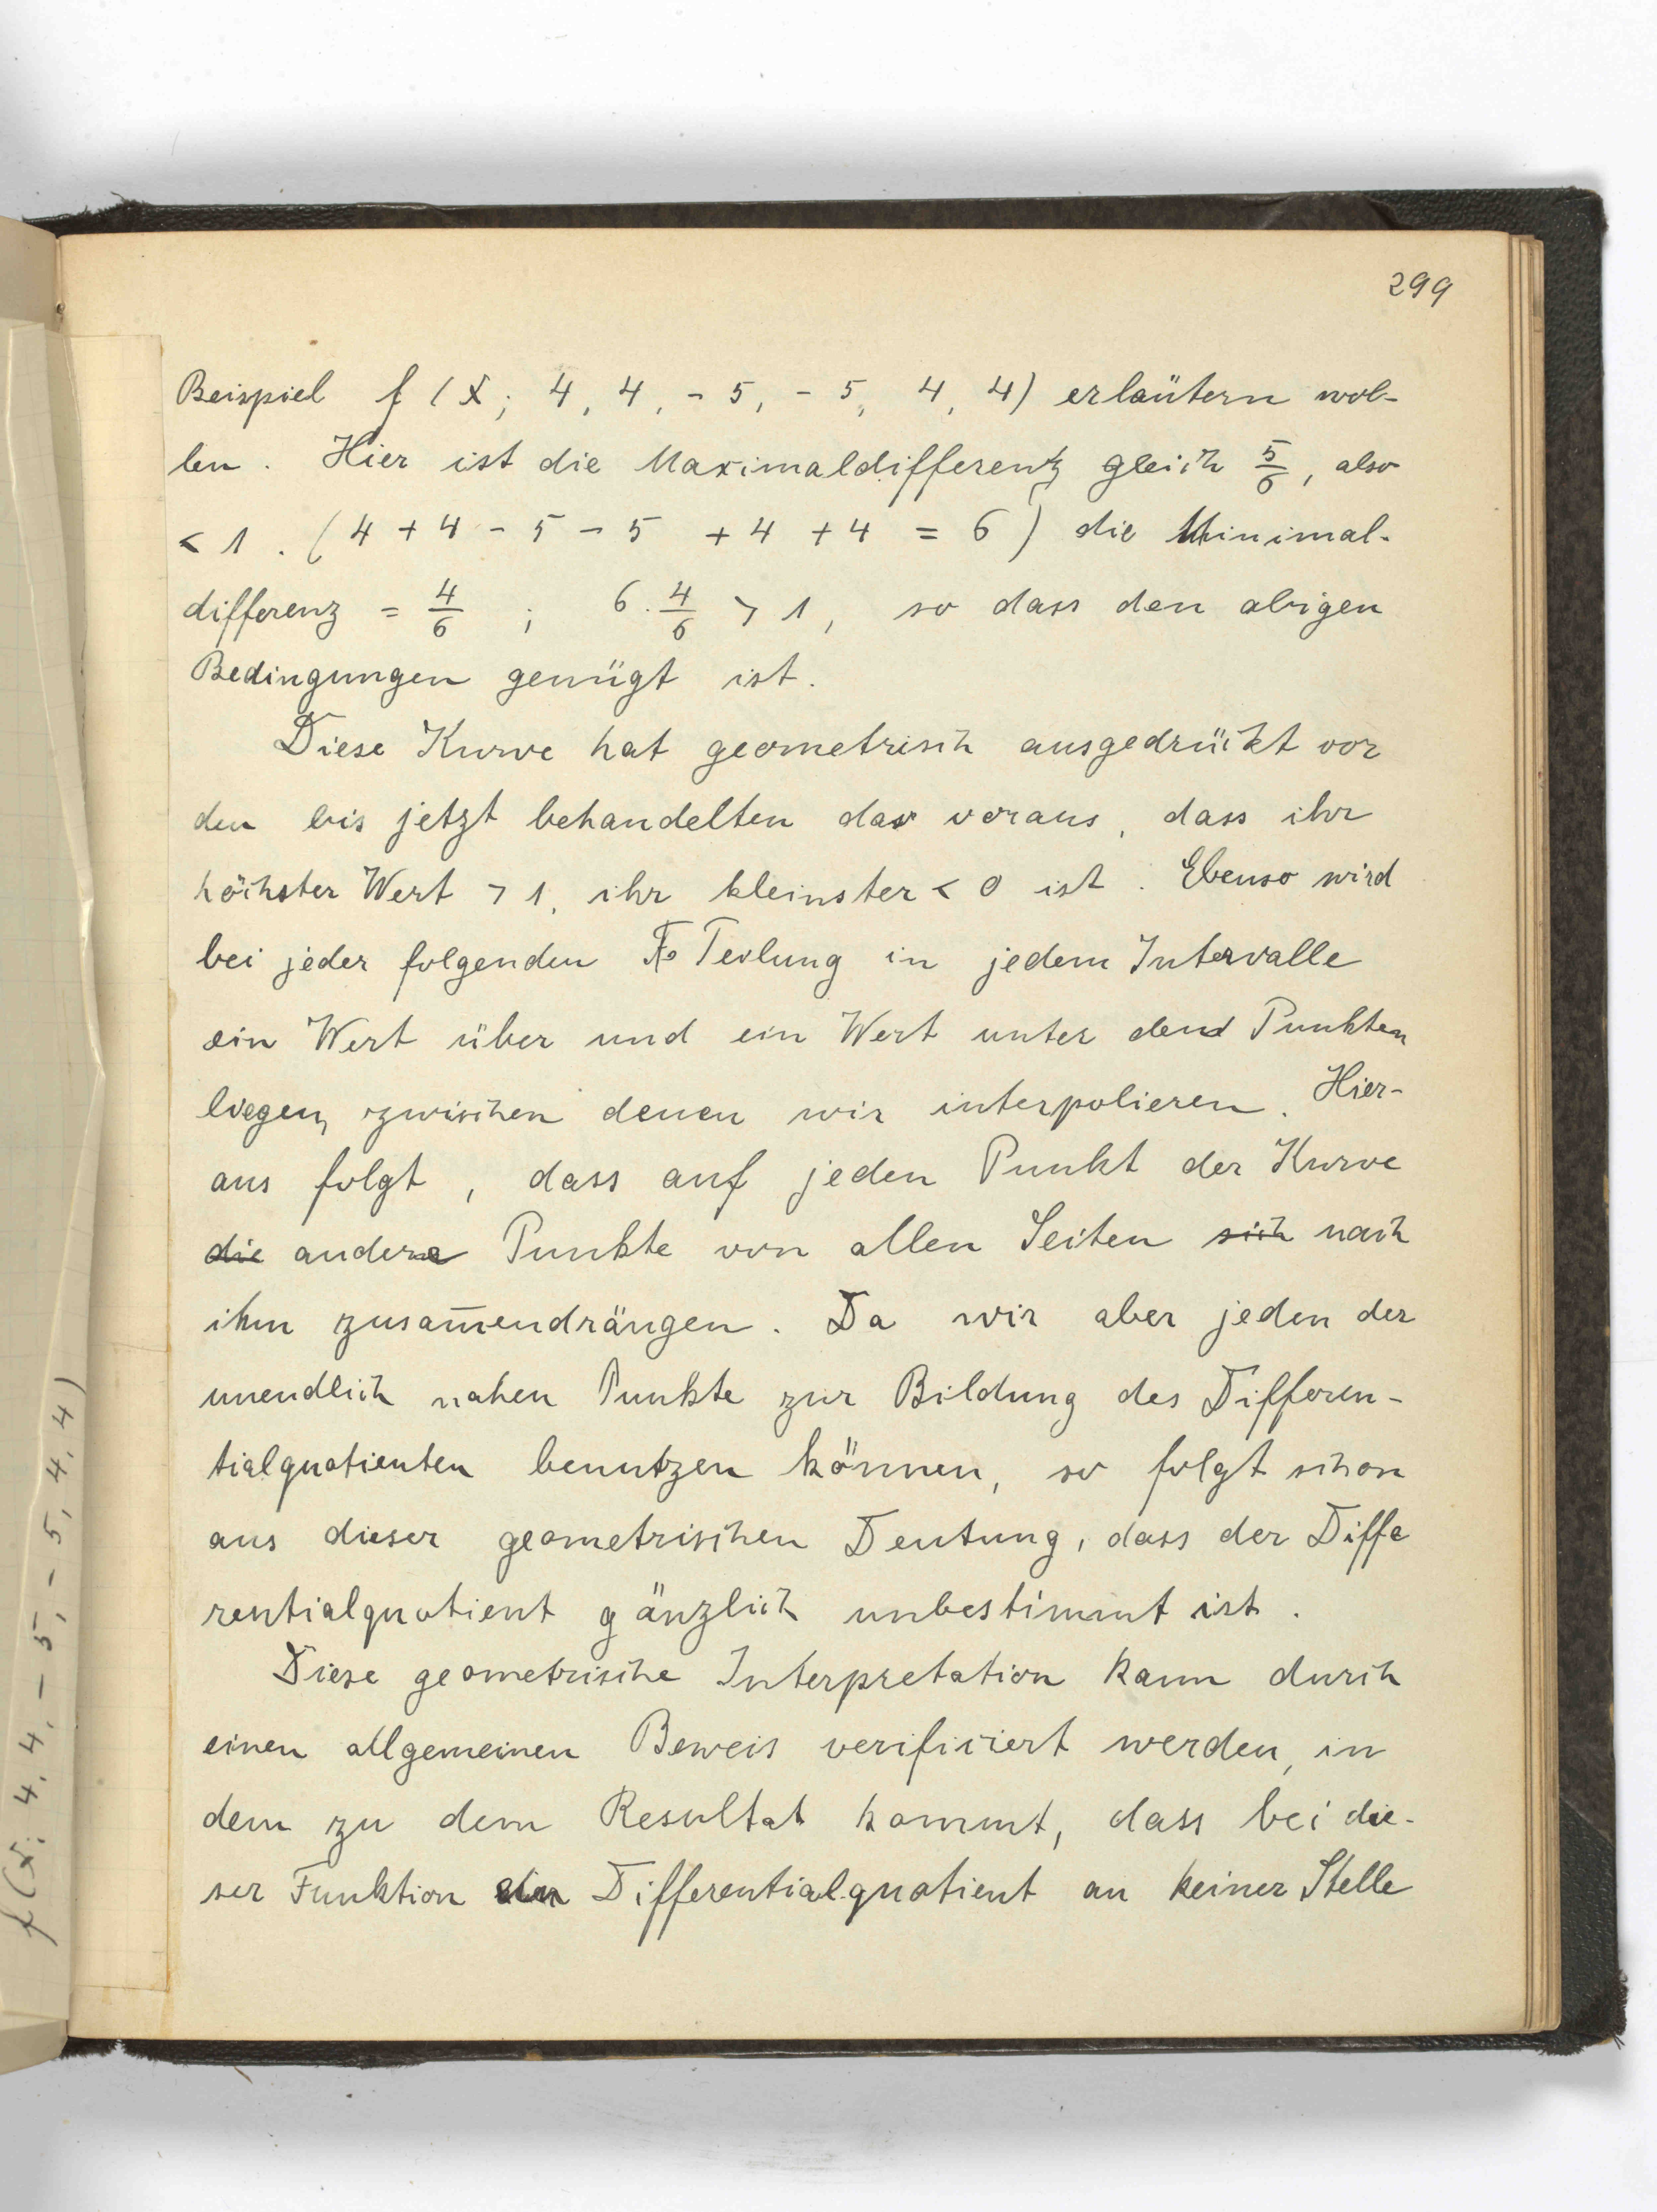 299
Beispiel f (x; 4, 4, - 5, - 5, 4, 4) erläutern wol-
len. Hier ist die Maximaldifferenz gleich 5/6, also
< 1. (4 + 4 - 5 - 5 + 4 + 4 = 6) die Minimal-
differenz = 4/6 ; 6 · 4/6 > 1, so dass den obigen
Bedingungen genügt ist.
Diese Kurve hat geometrisch ausgedrückt vor
den bis jetzt behandelten das voraus, dass ihr
höchster Wert > 1, ihr kleinster < 0 ist. Ebenso wird
bei jeder folgenden Teilung in jedem Intervalle
ein Wert über und ein Wert unter den Punkten
liegen, zwischen denen wir interpolieren. Hier-
aus folgt, dass auf jeden Punkt der Kurve
die andere Punkte von allen Seiten sich nach
ihm zusam̄endrängen. Da wir aber jeden der
unendlich nahen Punkte zur Bildung des Differen-
tialquotienten benutzen können, so folgt schon
aus dieser geometrischen Deutung, dass der Diffe
rentialquotient gänzlich unbestimmt ist.
Diese geometrische Interpretation kann durch
einen allgemeinen Beweis verificiert werden, in
dem zu dem Resultat kommt, dass bei die-
ser Funktion ein Differentialquotient an keiner Stelle
f (x; 4, 4, - 5, - 5, 4, 4)